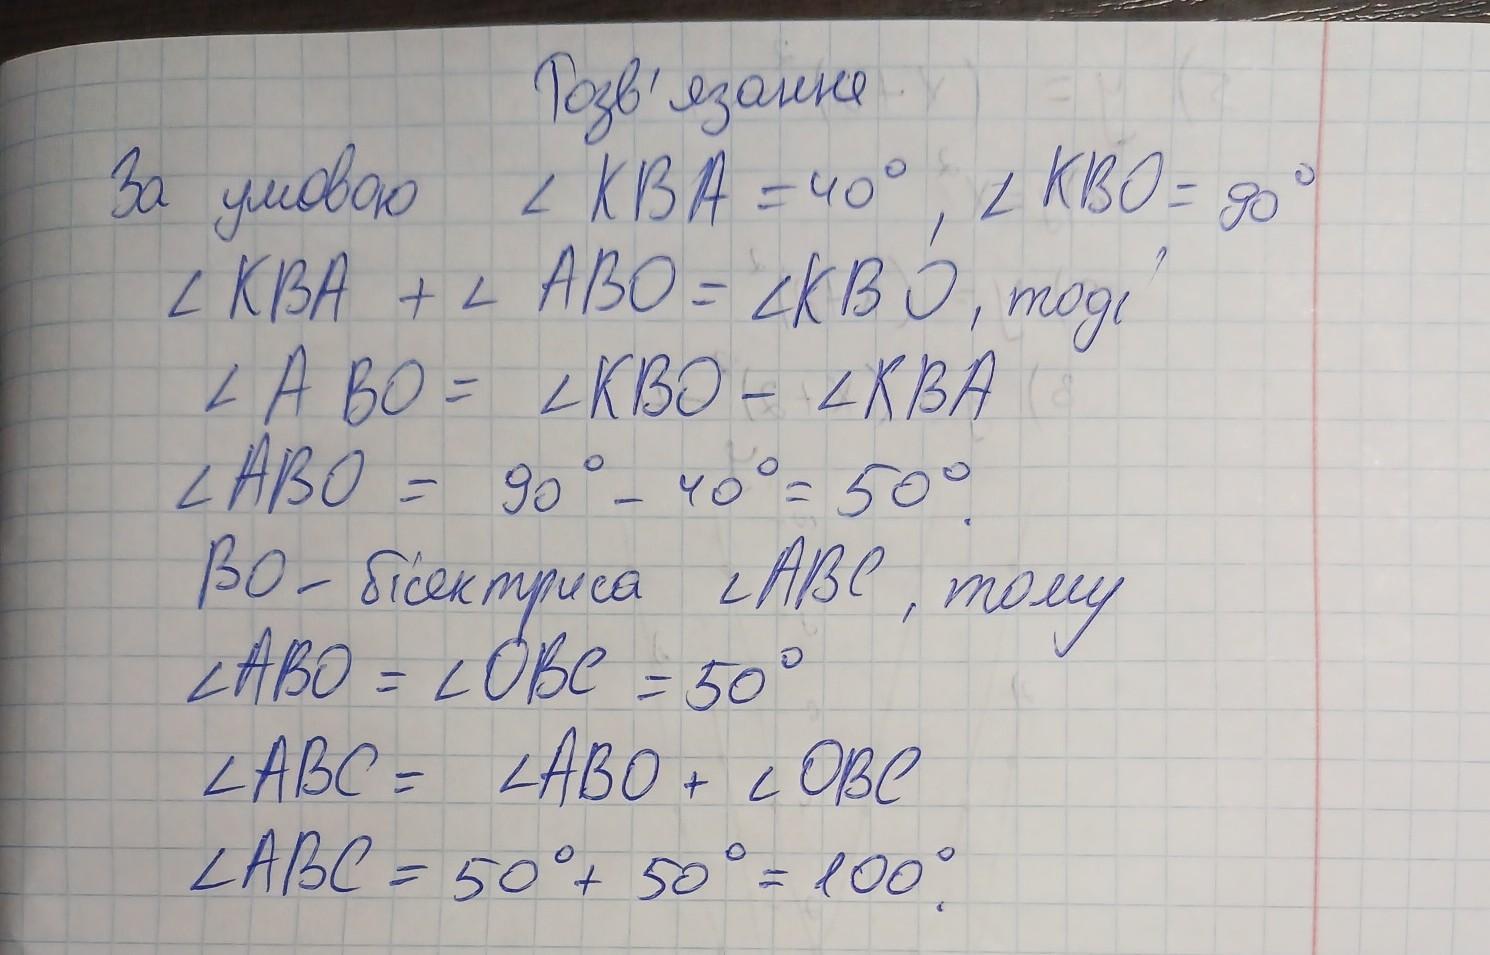 Розв'язання
За умовою ∠ KBA = 40°, ∠ KBO = 90°
∠ KBA + ∠ ABO = ∠KBO, тоді
∠ABO = ∠KBO - ∠KBA
∠ABO = 90° - 40° = 50°.
BO - бісектриса ∠ABC, тому
∠ABO = ∠OBC = 50°
∠ABC = ∠ABO + ∠OBC
∠ABC = 50° + 50° = 100°.